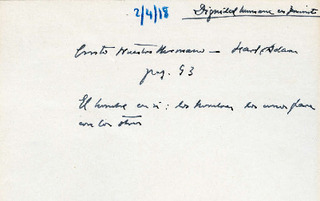 2/4/18 Dignidad humana es
Cristo Nuestro Hermano – Karl Adam
pag. 93
El hombre en sí: los hombres los unos para
con los otros